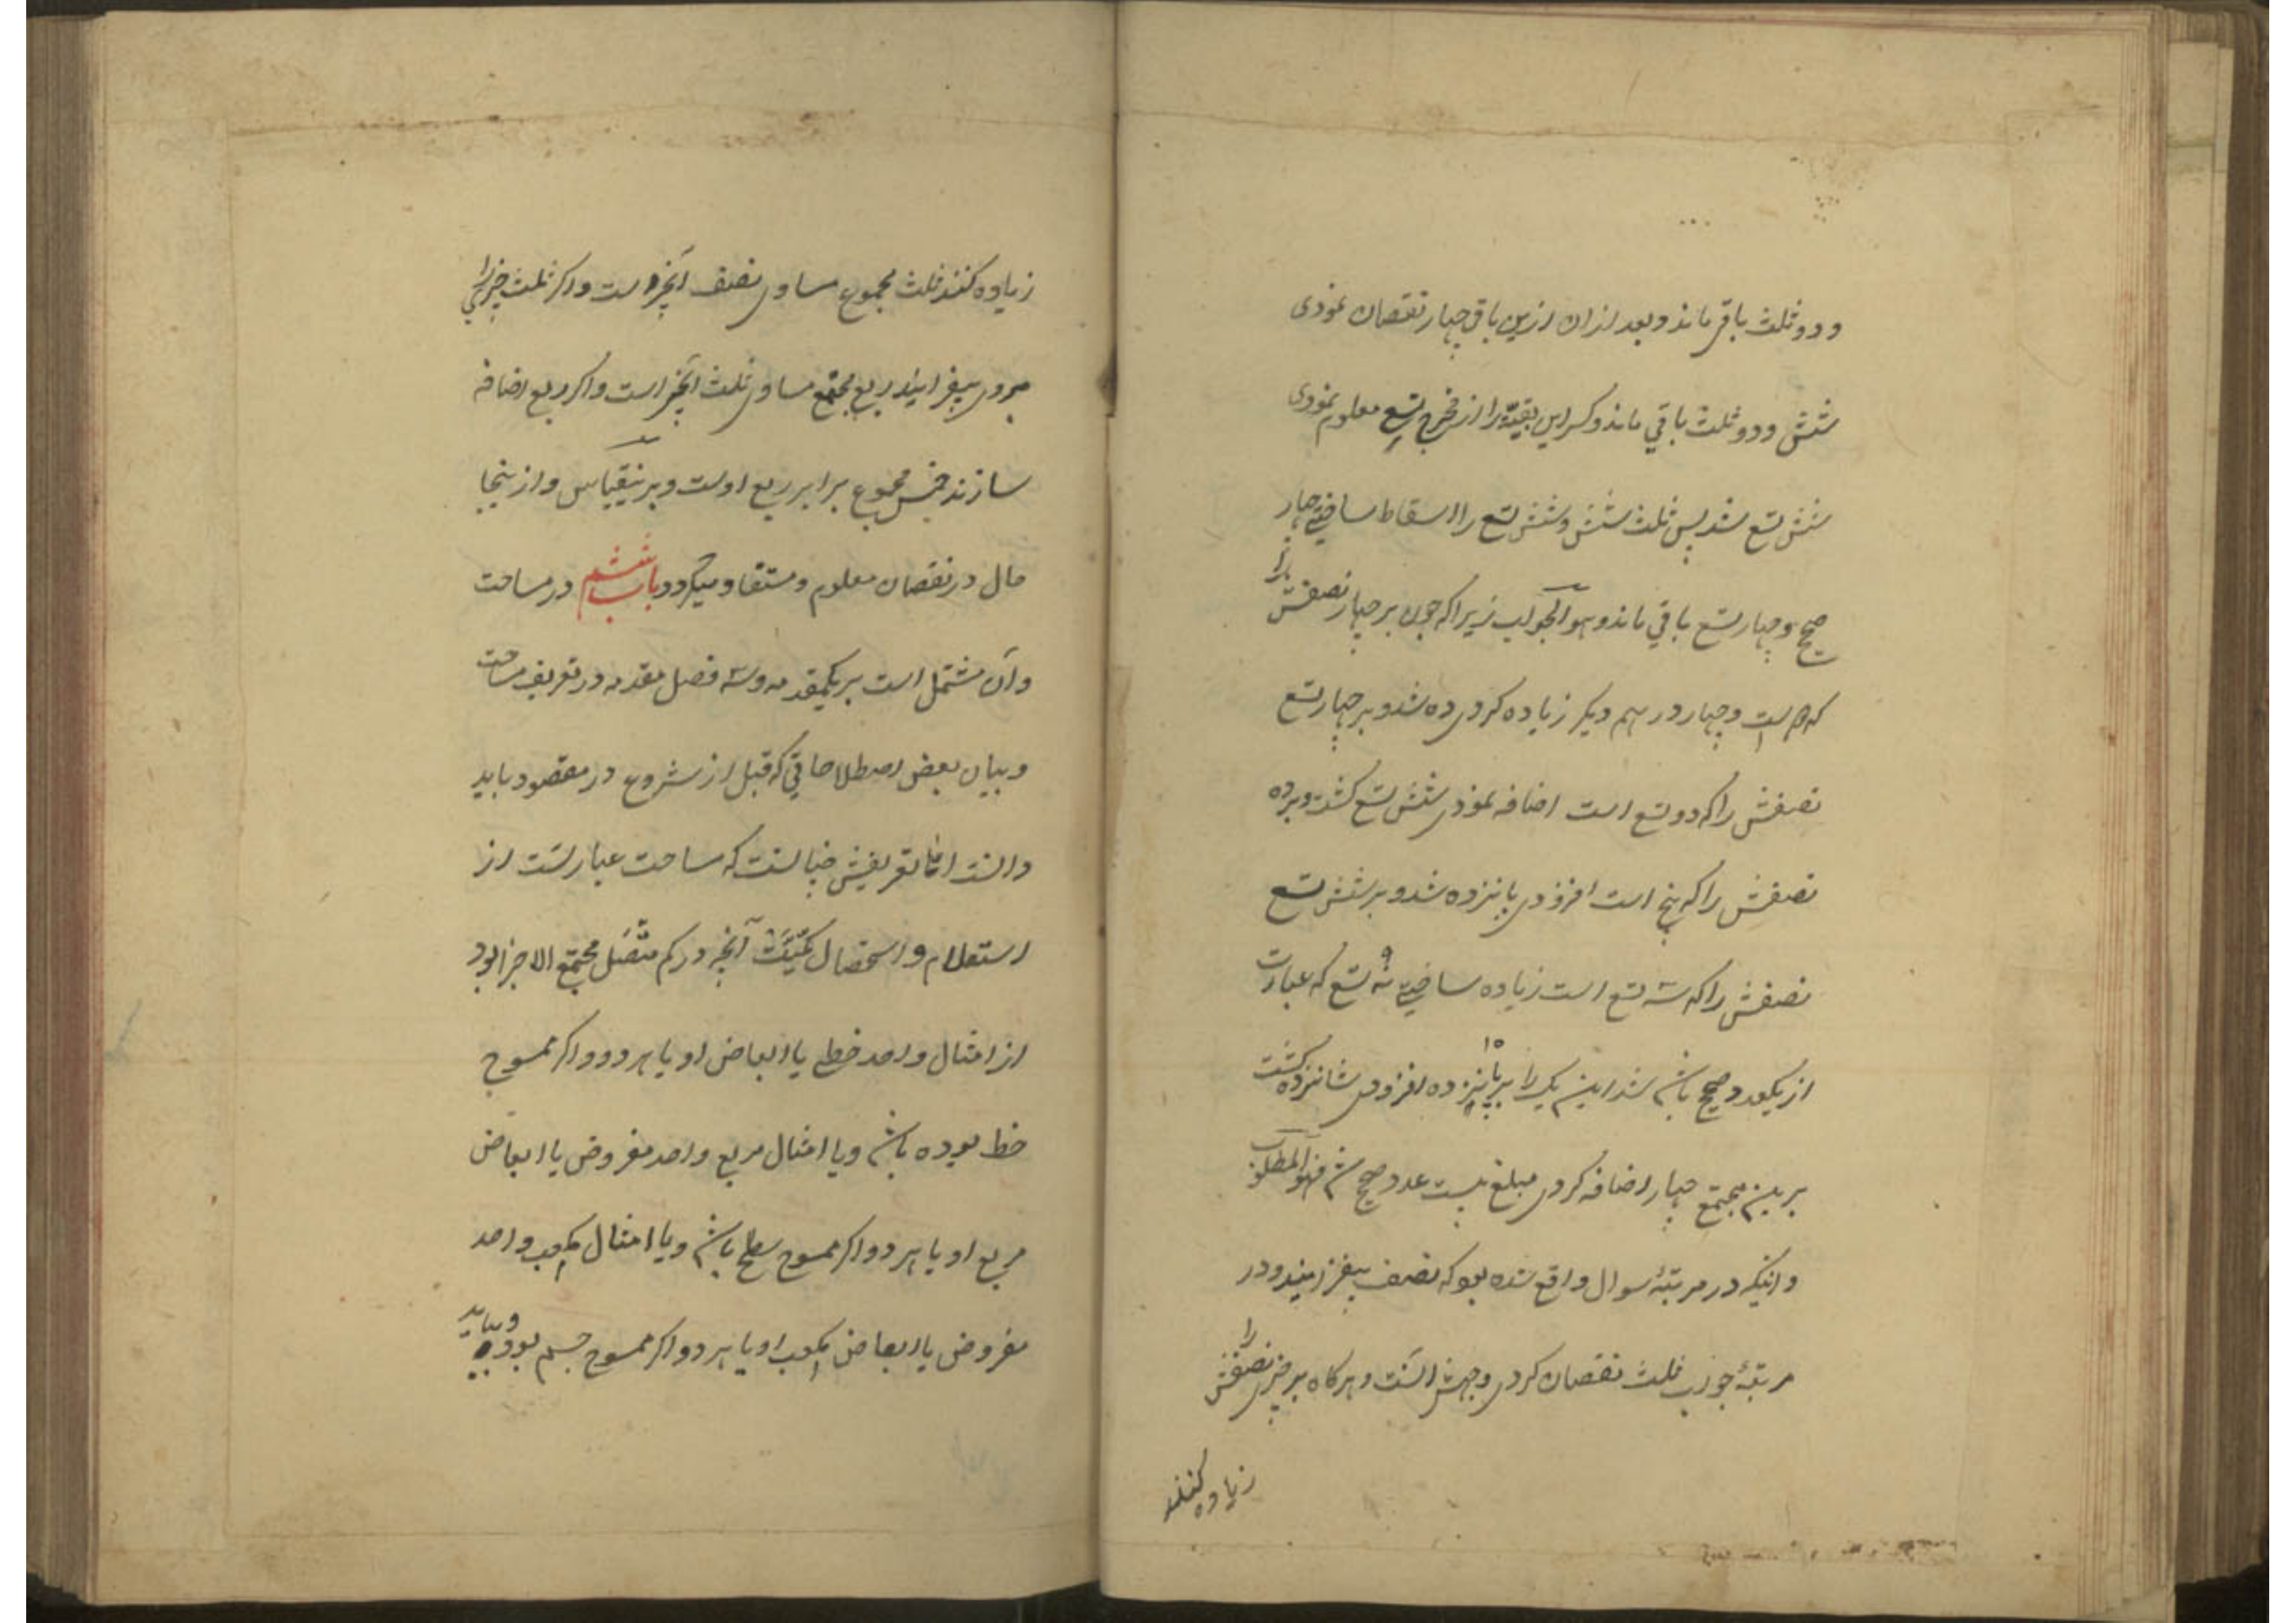 و دو ثلث باقی ماند و بعد از ان ازین باقی چهار نقصان نمودی
شش و دو ثلث باقی ماند و کسر این بقیّه را از مخرج تسع معلوم نمودی
شش تسع شد پس ثلث شش و شش تسع را اسقاط ساختی چهار
صحیح و چهار تسع باقی ماند و هو الجواب زیرا که چون بر چهار نصفش را
که است و چهار درهم دیگر زیاده کردی ده شد و بر چهار تسع
نصفش را که دو تسع است اضافه نمودی شش تسع کشت و بر ده
نصفش را که پنج است افزودی پانزده شد و بر شش تسع
نصفش را که سه تسع است زیاده ساختی نه ۹ تسع که عبارت
از یکعدد صحیح باشد شد این یک را بر پانزده ۱۵ افزودی شانزده کشت
برین مجتمع چهار اضافه کردی مبلغ بیست عدد صحیح شد فهو المطلوب
و اینکه در مرتبهٔ سوال واقع شده بود که نصف بیفزایند و در
مرتبهٔ جواب ثلث نقصان کردی وجهش آنست که هرکاه بر چیزی نصفش را
زیاده کنند
زیاده کنند ثلث مجموع مساوی نصف آنچیز است و اکر ثلث چیزی را
بروی بیفزایند ربع مجتمع مساوی ثلث آنچیز است و اکر ربع اضافه
سازند خمس مجموع برابر ربع اوست و برینقیاس و از ینجا
حال در نقصان معلوم و مستفاد میکردد باب ششم در مساحت
و آن مشتمل است بر یکمقدمه و سه فصل مقدمه در تعریف مساحت
و بیان بعض اصطلاحاتی که قبل از شروع در مقصود باید
دانست امّا تعریفش چنانست که مساحت عبارتست از
استعلام و استحصال کمّیّت آنچه در کم متّصل مجتمع الاجزا بود
از امثال واحد خطی یا ابعاض او یا هر دو اکر ممسوح
خط بوده باشد و یا امثال مربع واحد مفروض یا ابعاض
مربع او یا هر دو اکر ممسوح سطح باشد و یا امثال مکعب واحد
مفروض یا ابعاض مکعب او یا هر دو اکر ممسوح جسم بود و بباید